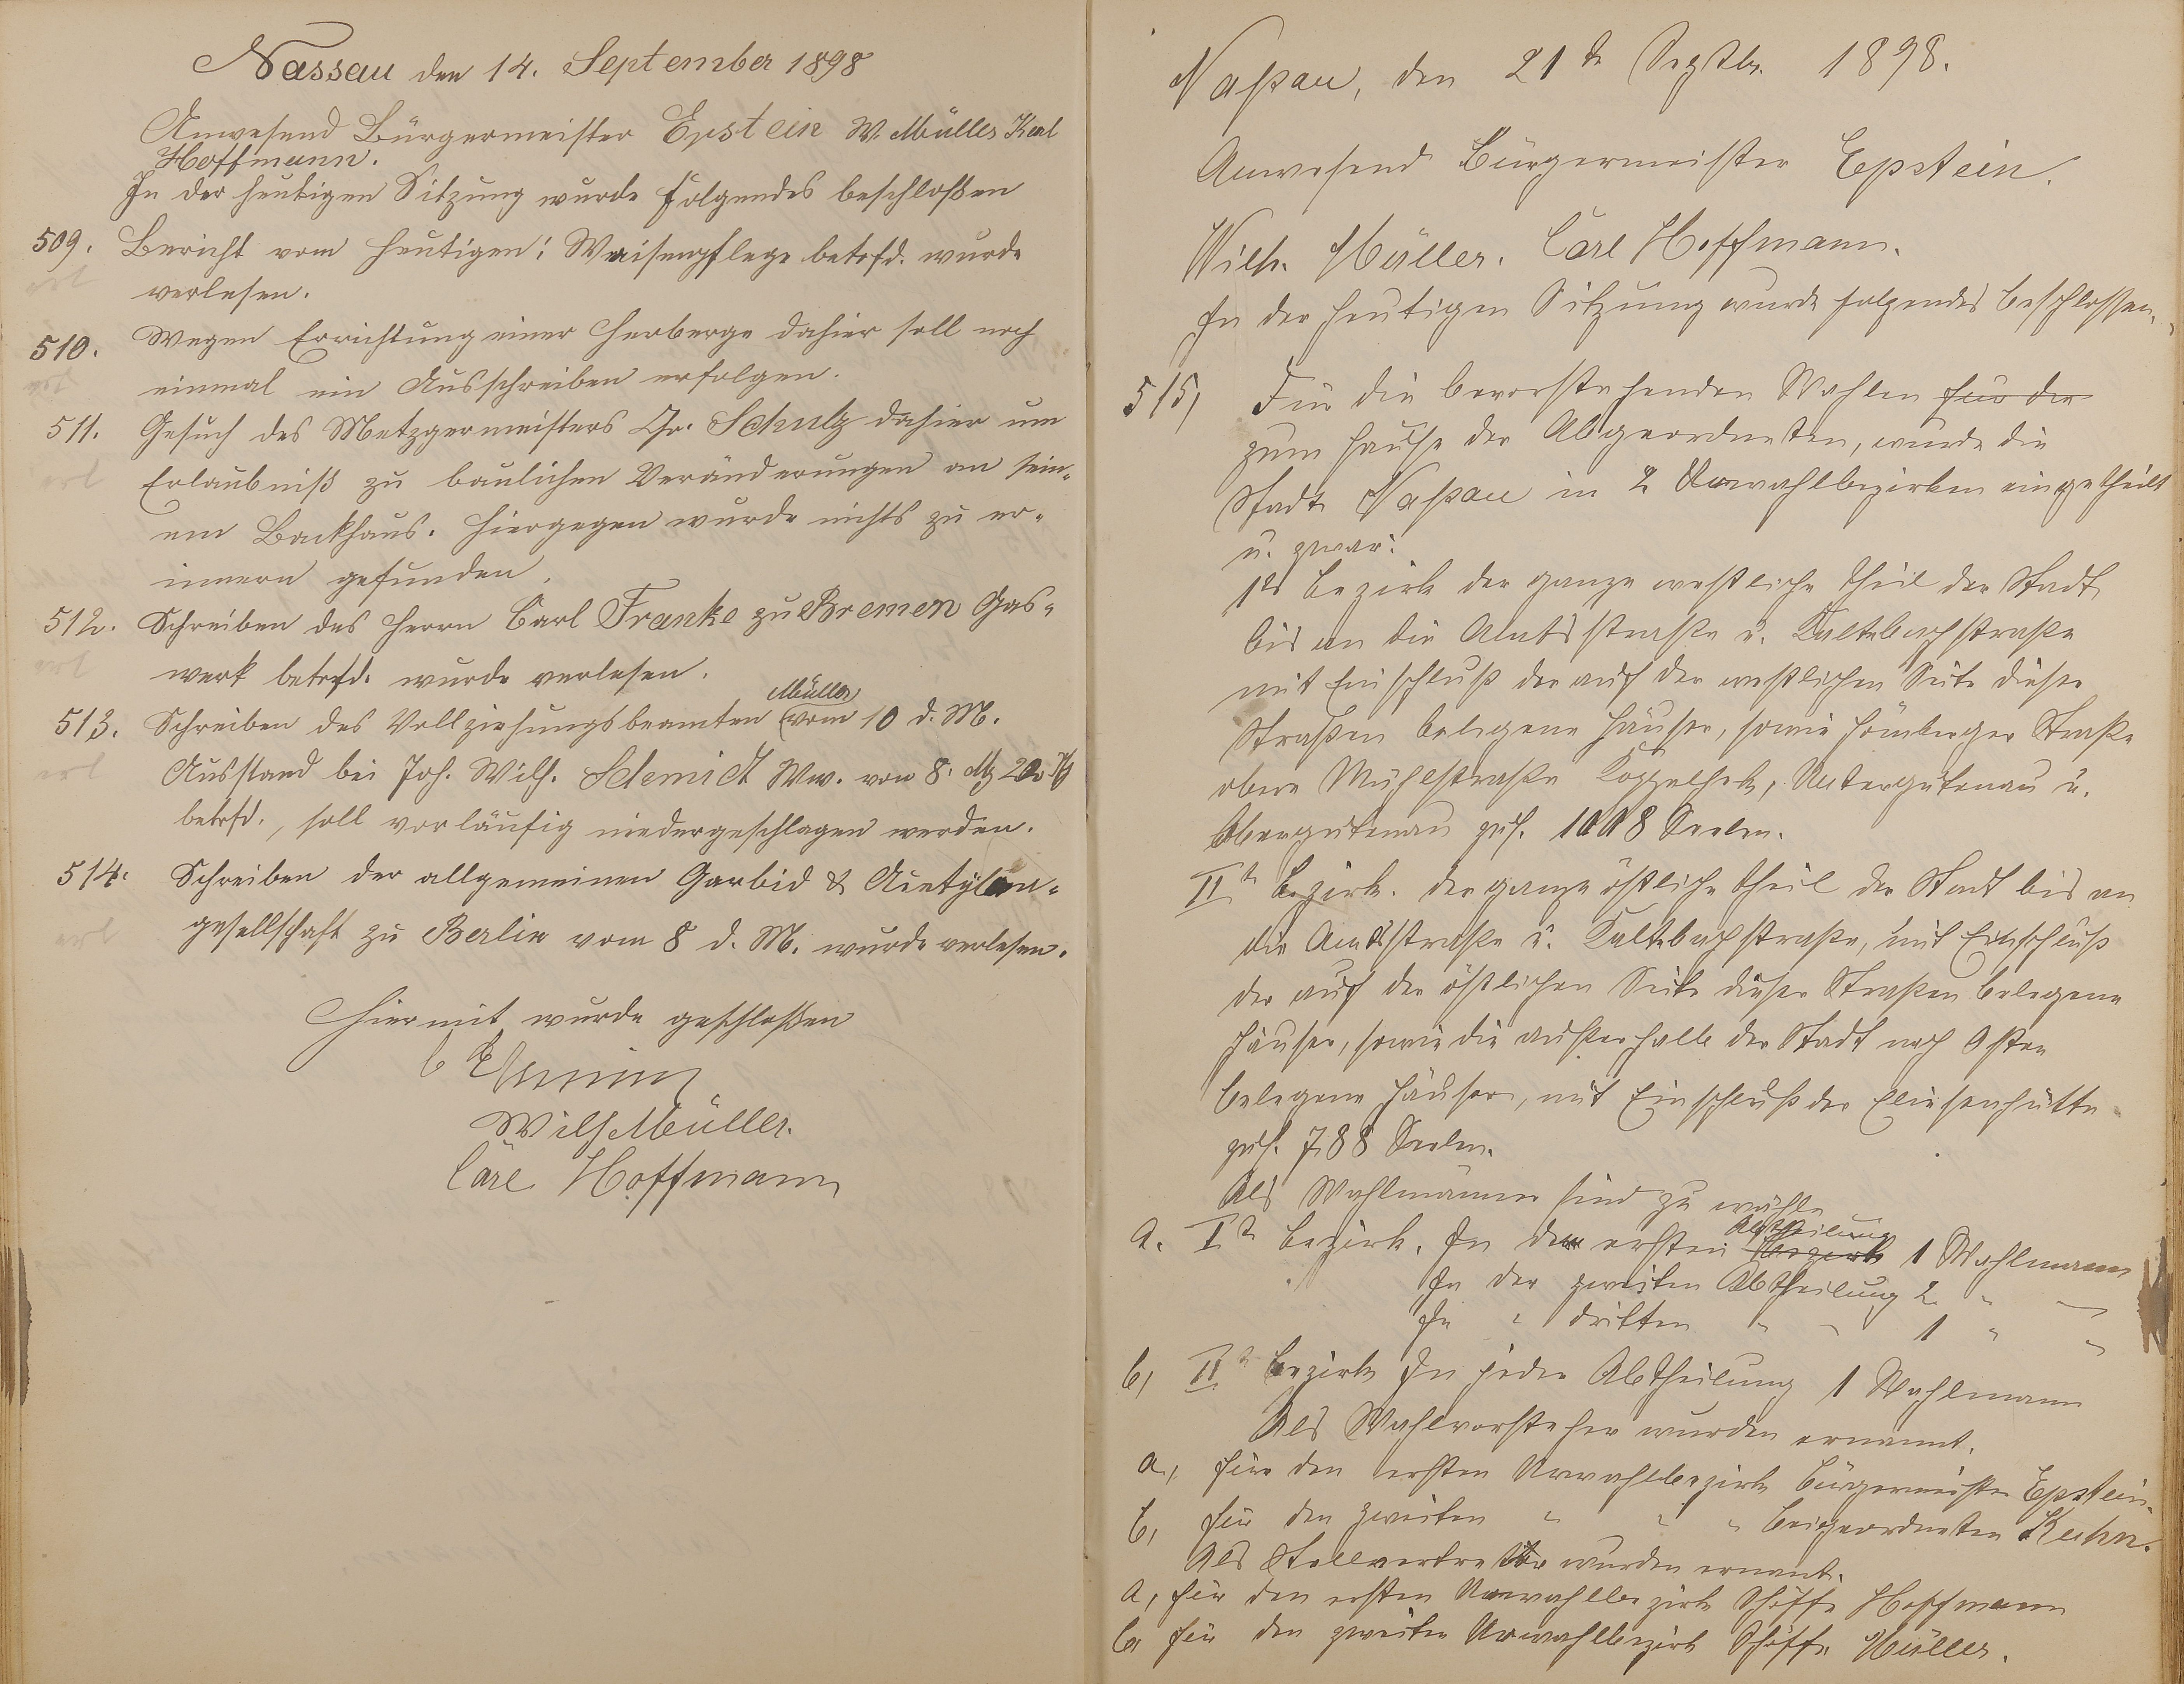 Nassau den 14. September 1898
Anwesend Bürgermeister Epstein W. Müller Karl
Hoffmann.
In der heutigen Sitzung wurde Folgendes beschloßen
509. Bericht vom Heutigen: Waisenpflege betrfd. wurde
verlesen.
510. Wegen Errichtung einer Herberge dahier soll noch
einmal ein Ausschreiben erfolgen.
511. Gesuch des Metzgermeisters Chr. Schulz dahier um
Erlaubniß zu baulichen Veränderungen an sein-
em Backhaus. Hiergegen wurde nichts zu er-
innern gefunden.
512. Schreiben des Herrn Carl Franke zu Bremen Gas-
werk betrfd. wurde verlesen.
Müller
513. Schreiben des Vollziehungsbeamten vom 10 d. M.
Ausstand bei Joh. Wilh. Schmidt Ww. von 8. M 20
betrfd., soll vorläufig niedergeschlagen werden.
514. Schreiben der allgemeinen Carbid & Acetylen-
gesellschaft zu Berlin vom 8 d. M. wurde verlesen.
Hiermit wurde geschloßen
Epstein
Wilh Müller.
Carl Hoffmann
Naßau, den 21te Septbr. 1898.
Anwesend Bürgermeister Epstein.
Wilh. Müller. Carl Hoffmann.
In der heutigen Sitzung wurde folgendes beschlossen.
515, Für die bevorstehenden Wahlen für der
zum Hause der Abgeordneten, wurde die
Stadt Naßau in 2 Urwahlbezirken eingetheilt
u. zwar:
1te Bezirk der ganze westliche Theil der Stadt
bis an die Amtsstraße u. Kaltebachstraße
mit Einschluß der auf der westlichen Seite dieser
Straßen belegene Häuser, sowie Hömberger Straße
obere Mühlstraße Koppelheck, Untergutenau u.
Obergutenau zus. 1008 Seelen.
IIte Bezirk. der ganze östliche Theil der Stadt bis an
die Amtsstraße u. Kaltebachstraße, mit Einschluß
der auf der östlichen Seite dieser Straßen belegene
Häuser, sowie die außerhalb der Stadt nach Osten
belegene Häuser, mit Einschluß der Eliesenhütte
zus. 788 Seelen.
Als Wahlmänner sind zu wähle
Abtheilung
a. Ite Bezirk. In der ersten Bezirk 1 Wahlmann
In der zweiten Abtheilung 2 " "
In " dritten " " 1 " "
b, IIte Bezirk In jeder Abtheilung 1 Wahlmann
Als Wahlvorsteher wurden ernannt.
a, für den ersten Urwahlbezirk Bürgermeister Epstein.
b, für den zweiten " " " Beigeordneten Kuhn.
Als Stellvertreter wurden ernant.
a, für den ersten Urwahlbezirk Schöffe Hoffmann
b, für den zweiten Urwahlbezirk Schöffe Müller.